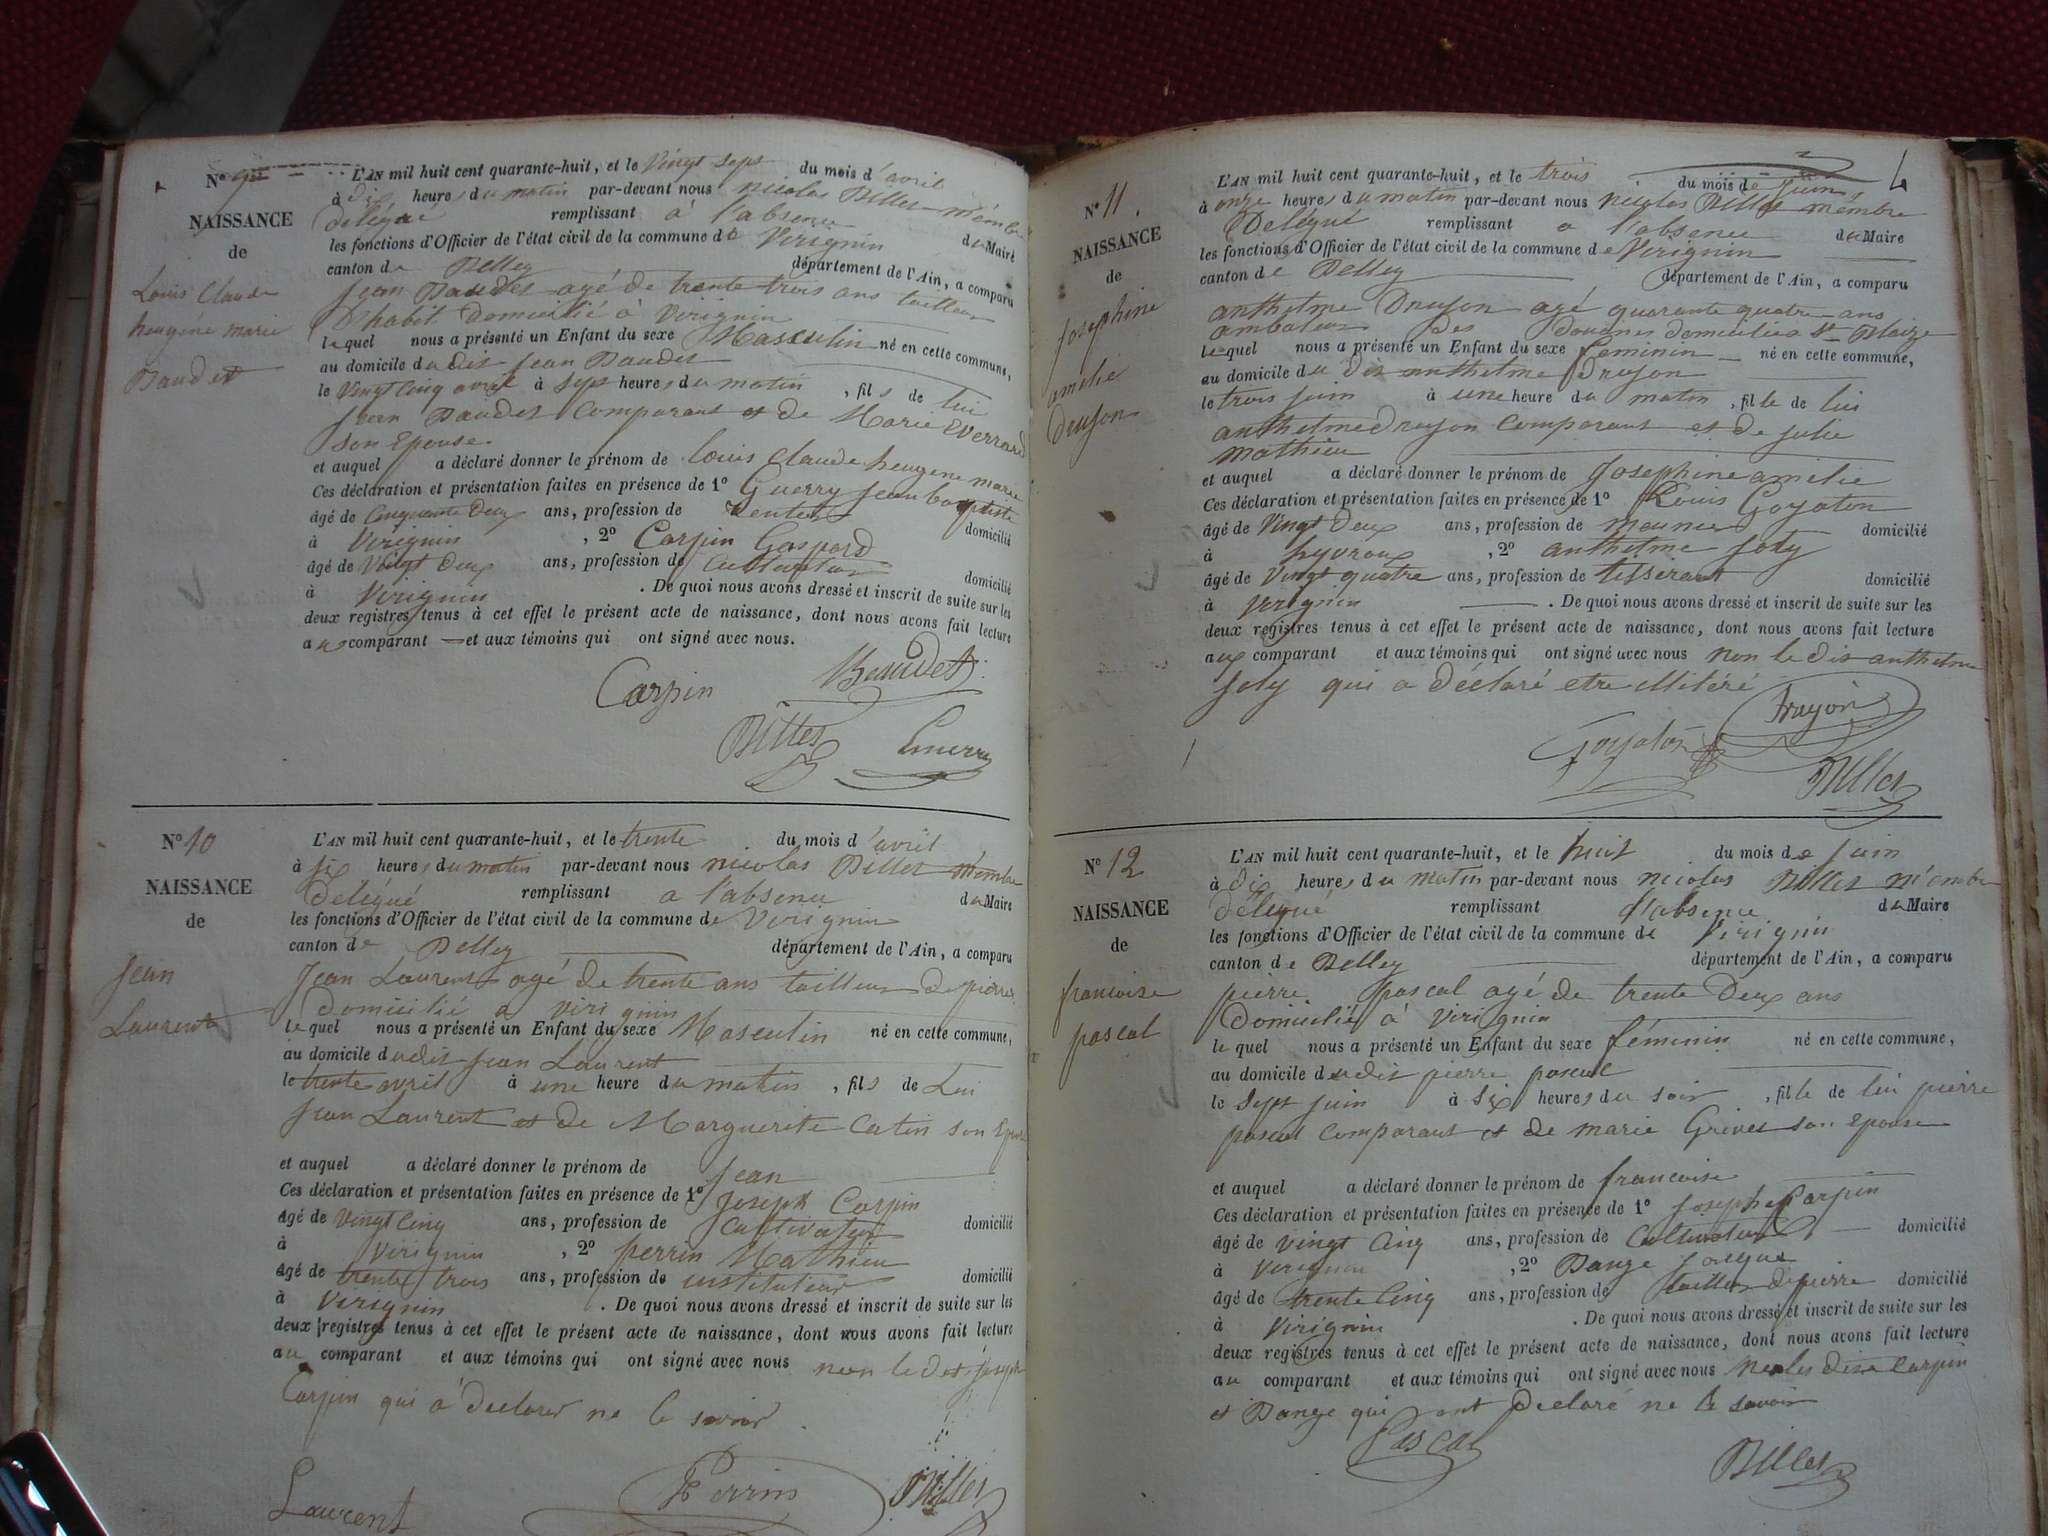 N° 9
NAISSANCE
de
Louis Claude
heugéne marie
Baudet
L'AN mil huit cent quarante-huit, et le Vingt Sept du mois d'avril
à dix heures du matin par-devant nous nicolas Billet membre
délégué remplissant à l'absence du Maire
les fonctions d'Officier de l'état civil de la commune de Virignin
canton de Belley département de l'Ain, a comparu
Jean Baudet agé de trente trois ans tailleur
D'habit Domicilié à Virignin
lequel nous a présenté un Enfant du sexe Masculin né en cette commune,
au domicile dudit Jean Baudet
le Vingt Cinq avril à Sept heures du matin, fils de lui
Jean Baudet Comparant et de Marie Everrard
Son Epouse
et auquel a déclaré donner le prénom de Louis Claude heugene marie
Ces déclaration et présentation faites en présence de 1° Guerry Jean baptiste
âgé de Cinquante Deux ans, profession de Rentier domicilié
à Virignin, 2° Carpin Gaspard
âgé de Vingt Deux ans, profession de Cultivateur domicilié
à Virignin. De quoi nous avons dressé et inscrit de suite sur les
deux registres tenus à cet effet le présent acte de naissance, dont nous avons fait lecture
au comparant et aux témoins qui ont signé avec nous.
Carpin Beaudet
Billet Guerry
N° 10
NAISSANCE
de
Jean
Laurent
L'AN mil huit cent quarante-huit, et le trente du mois d'avril
à six heures du matin par-devant nous nicolas Billet membre
Delégué remplissant a l'absence du Maire
les fonctions d'Officier de l'état civil de la commune de Virignin
canton de Belley département de l'Ain, a comparu
Jean Laurent agé de trente ans tailleur de pierre
Domicilié a virignin
lequel nous a présenté un Enfant du sexe Masculin né en cette commune,
au domicile dudit Jean Laurent
le trente avril à une heure du matin, fils de Lui
Jean Laurent et de Marguerite Catin son Epouse
et auquel a déclaré donner le prénom de Jean
Ces déclaration et présentation faites en présence de 1° Joseph Carpin
âgé de Vingt Cinq ans, profession de Cultivateur domicilié
à Virignin, 2° perrin Mathieu
âgé de trente trois ans, profession de instituteur domicilié
à Virignin. De quoi nous avons dressé et inscrit de suite sur les
deux registres tenus à cet effet le présent acte de naissance, dont nous avons fait lecture
au comparant et aux témoins qui ont signé avec nous non le dit Joseph
Carpin qui a declarer ne le savoir.
Laurent Perrin Billet
N° 11.
NAISSANCE
de
Josephine
amelie
Drujon
L'AN mil huit cent quarante-huit, et le trois du mois de Juin
à onze heures du matin par-devant nous nicolas Billet membre
Délégué remplissant a l'absence du Maire
les fonctions d'Officier de l'état civil de la commune de Virignin
canton de Belley département de l'Ain, a comparu
anthelme Drujon agé quarante quatre ans
des Douanes domicilié a St Blaize
lequel nous a présenté un Enfant du sexe feminin né en cette commune,
au domicile du dit anthelme Drujon
le trois juin à une heure du matin, fille de lui
anthelme Drujon Comparant et de julie
mathieu
et auquel a déclaré donner le prénom de Josephine amelie
Ces déclaration et présentation faites en présence de 1° Louis Goyaton
âgé de Vingt Deux ans, profession de meunier domicilié
à, 2° anthelme Joly
âgé de Vingt quatre ans, profession de tisserant domicilié
à Virignin. De quoi nous avons dressé et inscrit de suite sur les
deux registres tenus à cet effet le présent acte de naissance, dont nous avons fait lecture
aux comparant et aux témoins qui ont signé avec nous non le dit anthelme
Joly qui a déclaré etre illitéré
Goyaton Drujon
Billet
N° 12
NAISSANCE
de
francoise
pascal
L'AN mil huit cent quarante-huit, et le huit du mois de juin
à dix heures du matin par-devant nous nicolas Billet membre
délégué remplissant a l'absence du Maire
les fonctions d'Officier de l'état civil de la commune de Virignin
canton de Belley département de l'Ain, a comparu
pierre pascal agé de trente Deux ans
Domicilié à virignin
lequel nous a présenté un Enfant du sexe féminin né en cette commune,
au domicile dudit pierre pascal
le Sept juin à Six heures du soir, fille de lui pierre
pascal Comparant et de marie Grivet son epouse
et auquel a déclaré donner le prénom de francoise
Ces déclaration et présentation faites en présence de 1° Joseph Carpin
âgé de vingt Cinq ans, profession de Cultivateur domicilié
à Virignin, 2° Dange Jacque
âgé de trente Cinq ans, profession de tailleur de pierre domicilié
à Virignin. De quoi nous avons dressé et inscrit de suite sur les
deux registres tenus à cet effet le présent acte de naissance, dont nous avons fait lecture
au comparant et aux témoins qui ont signé avec nous non les dits Carpin
et Dange qui ont déclaré ne le savoir
Pascal Billet